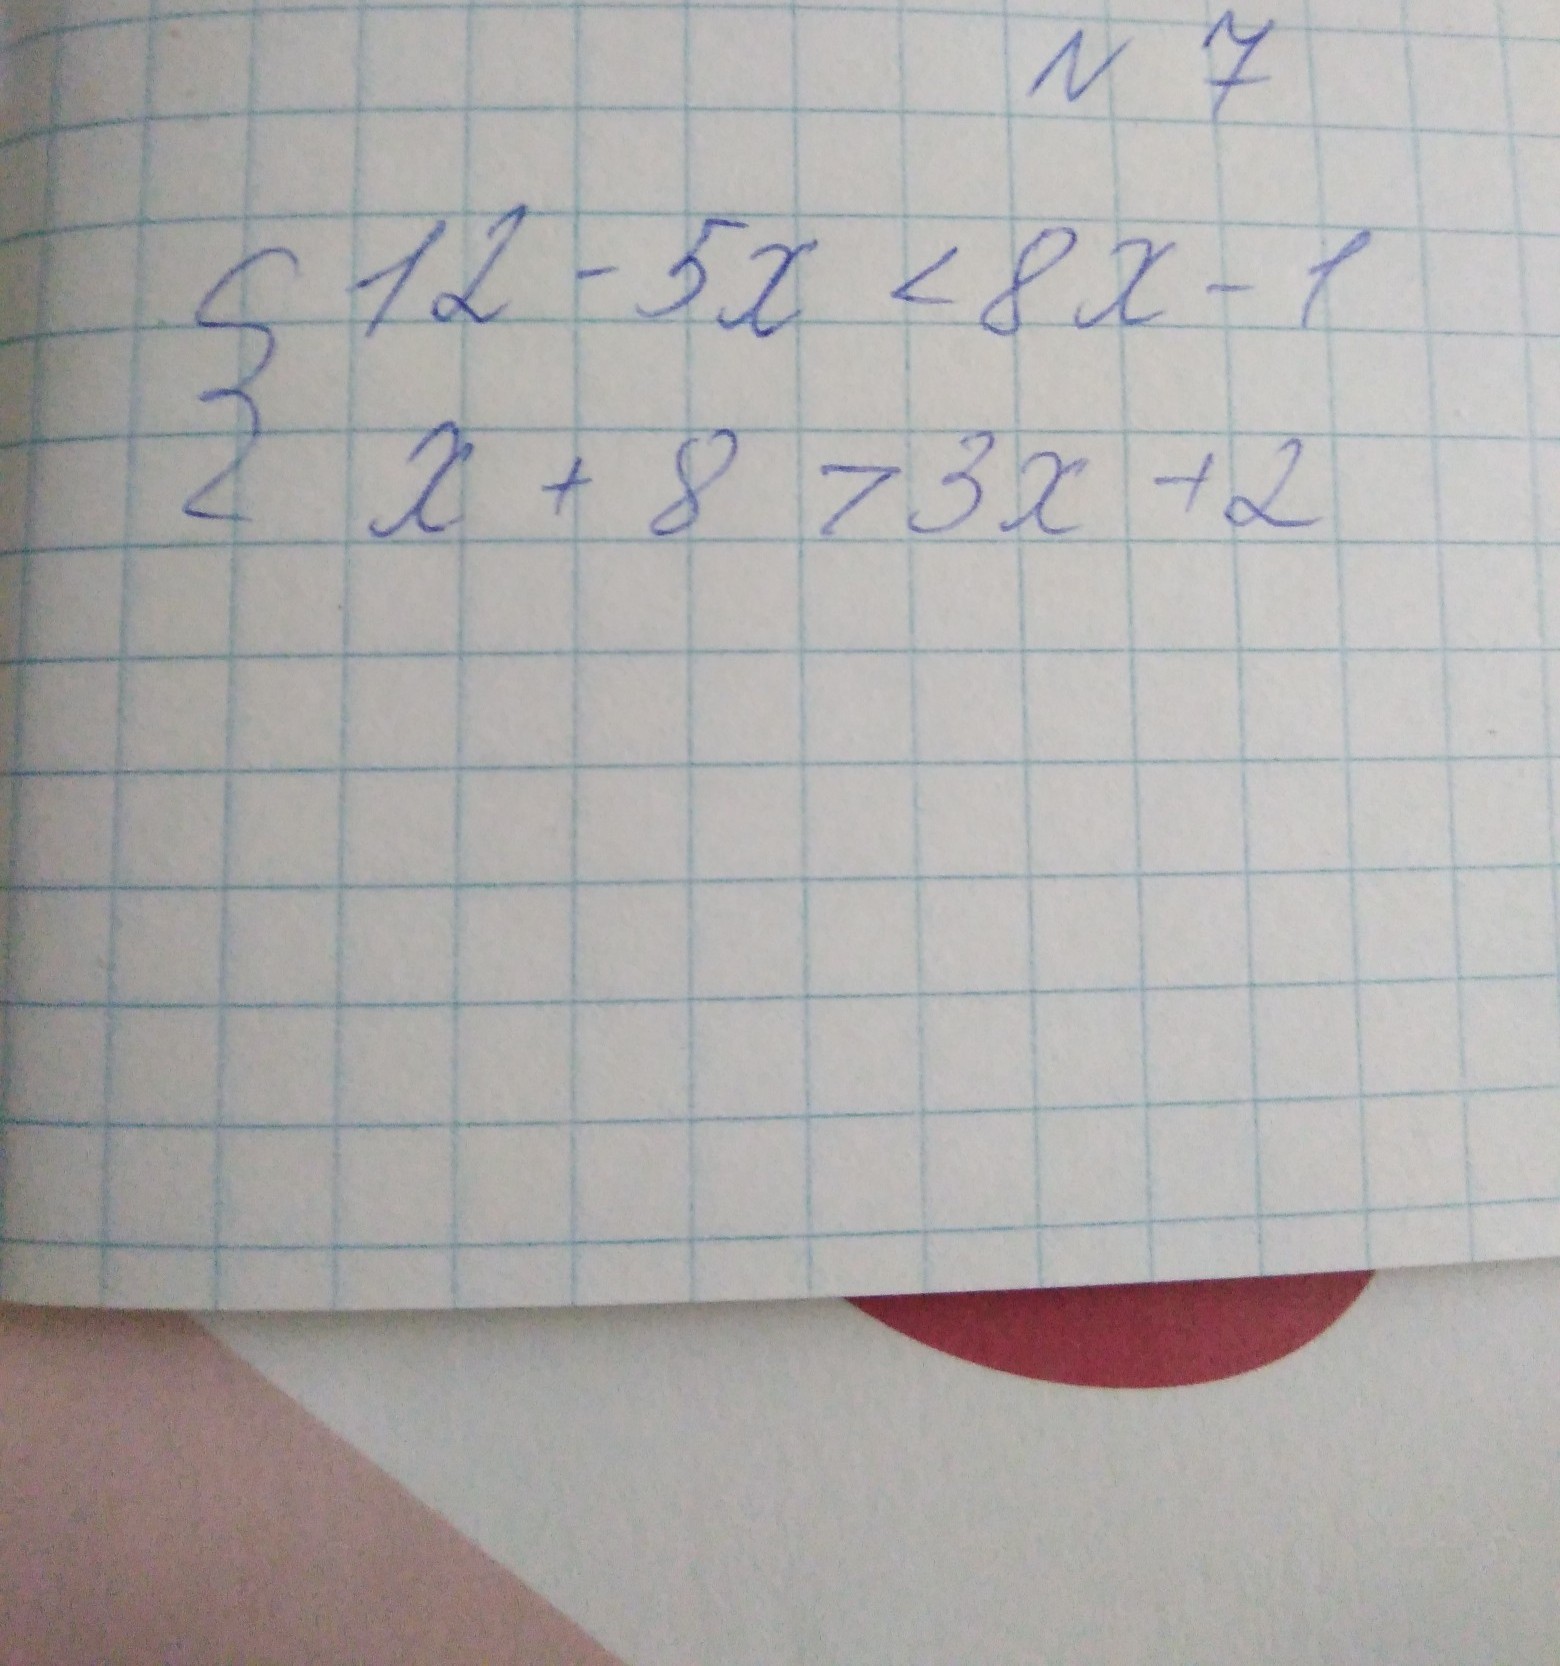 N 7
{ 12 - 5x < 8x - 1
x + 8 > 3x + 2